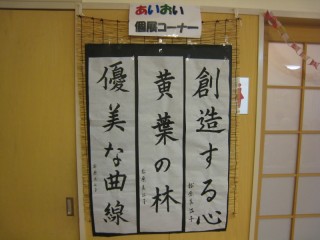 あいおい
個展コーナー
創造する心
黄葉の林
優美な曲線